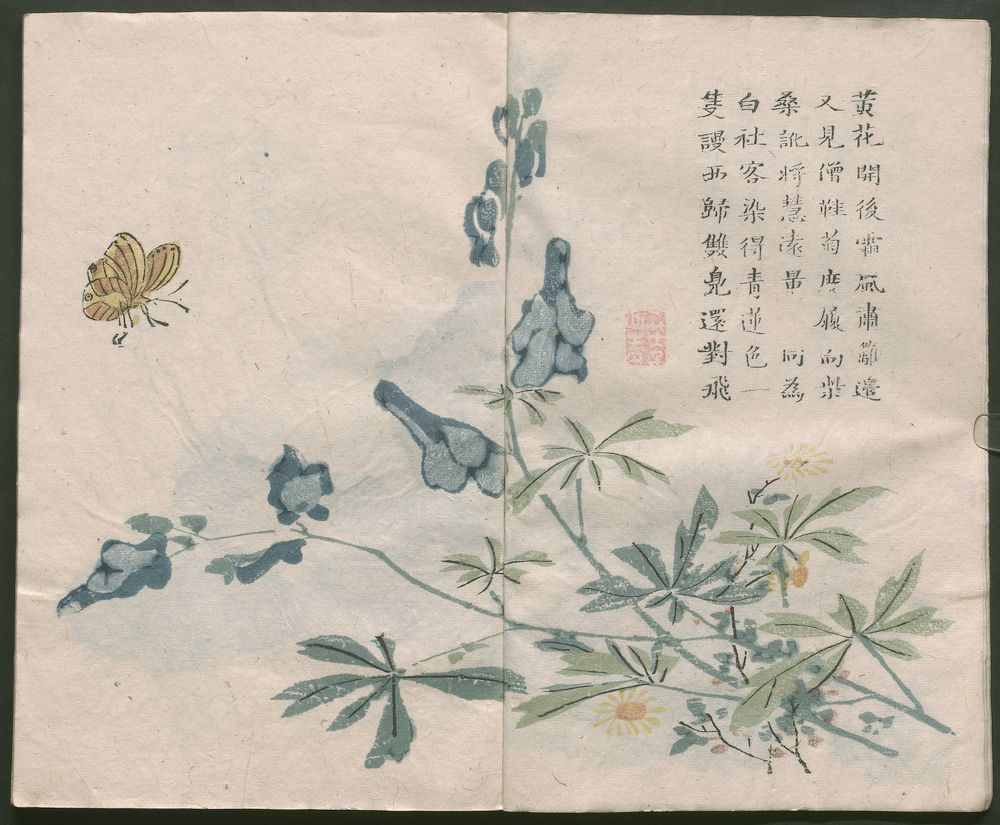 黄花開後霜風肅籬邊
又見僧鞋菊履向柴
桑訛將慧遠量 同為
白社客染得青蓮色一
隻謾西歸雙鳧還對飛